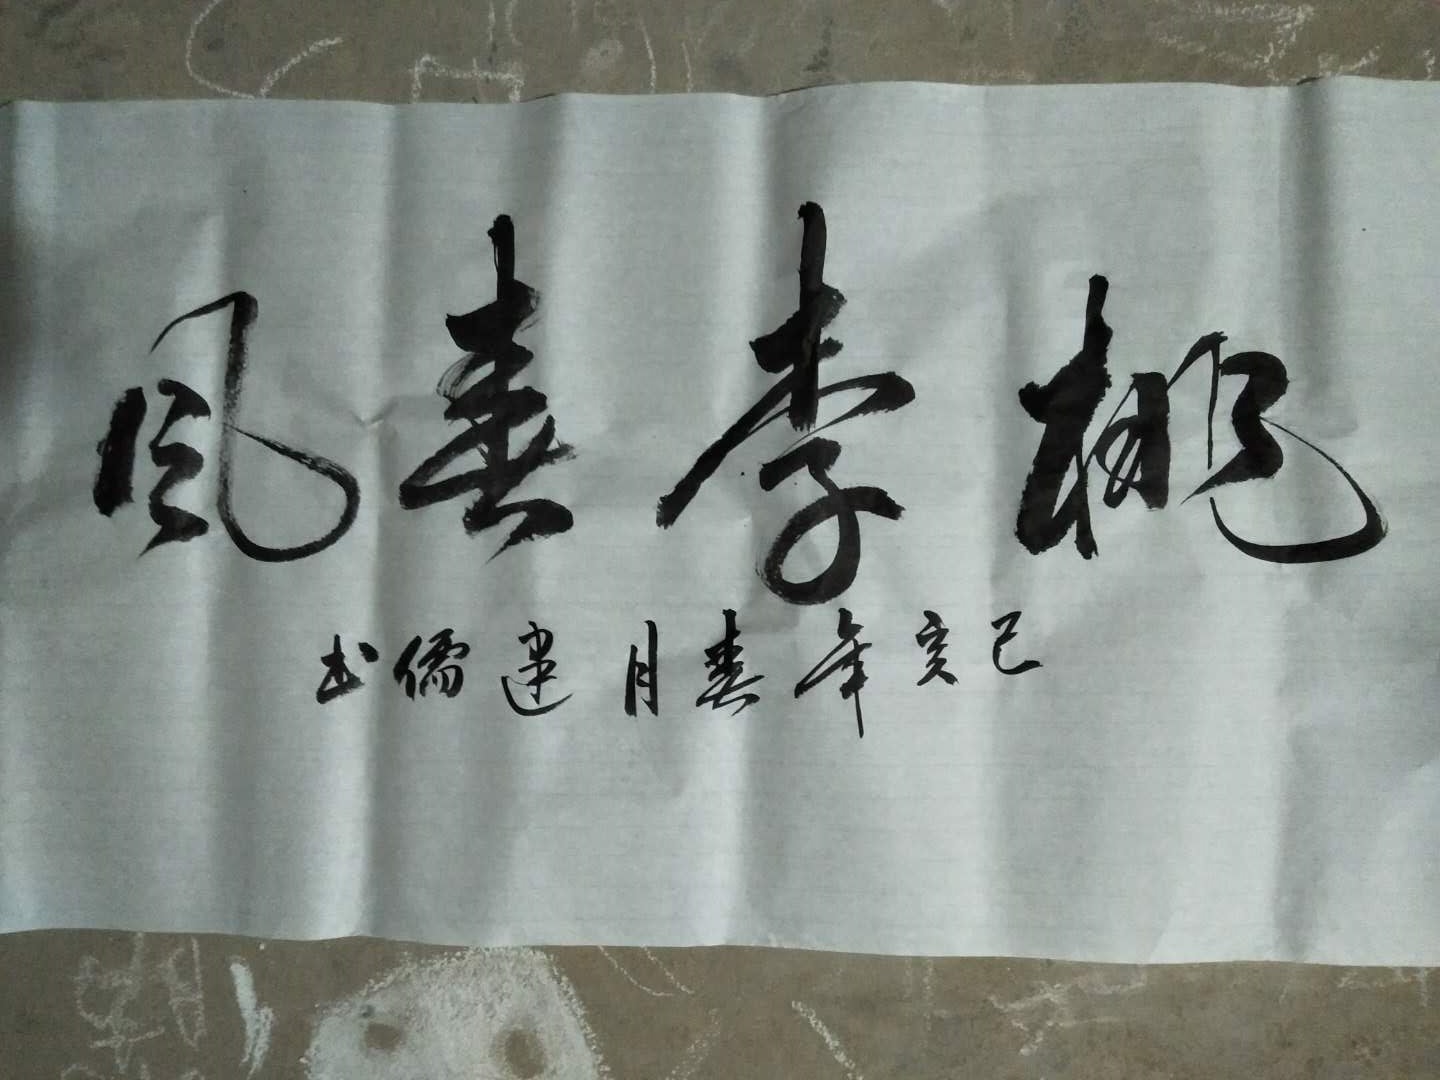 桃李春风
己亥年春月建儒书